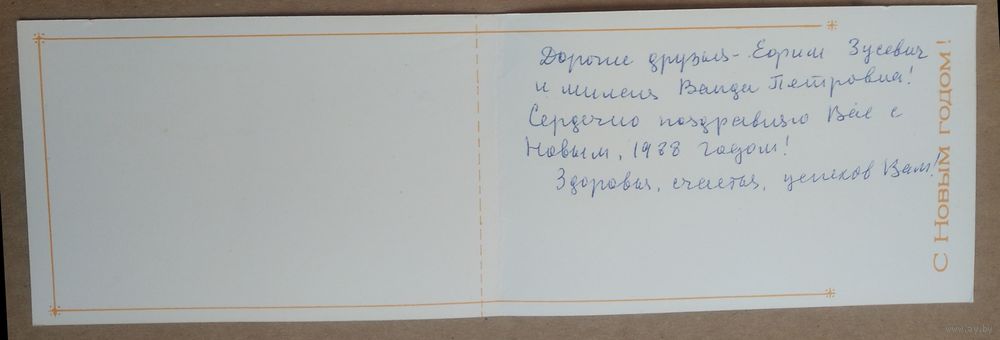 Дорогие друзья - Ефим Зусевич
и милая Ванда Петровна!
Сердечно поздравляю Вас с
Новым, 1988 годом!
Здоровья, счастья, успехов Вам!
С Новым годом!
www.ay.by